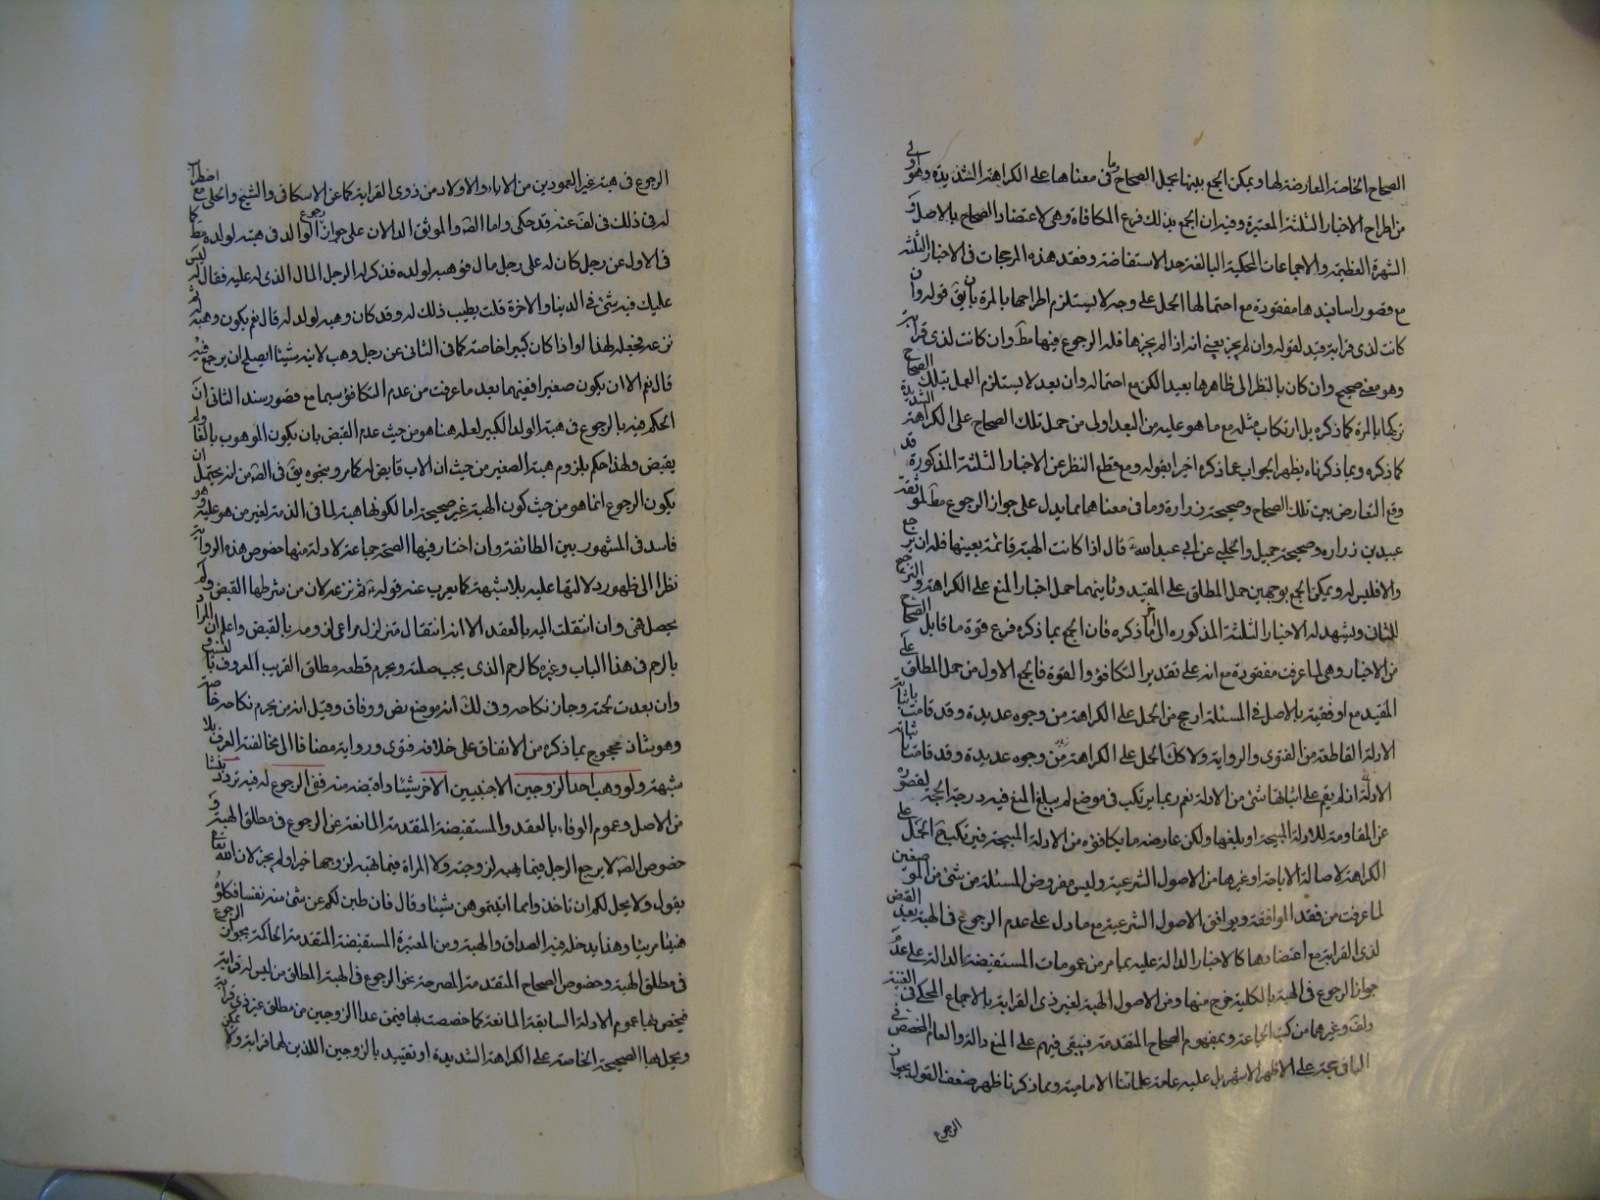 الصحاح الخاصة المعارضة لها ويمكن الجمع بينها بحمل الصحاح وما فى معناها على الكراهة الشديدة وهو اولى
من اطراح الاخبار الثلثة المعتبرة وفيه ان الجمع بذلك فرع المكافاة وهى لاعتضاد الصحاح بالاصل و
الشهرة العظيمة والاجماعات المحكية البالغة حد الاستفاضة وفقد هذه المرجحات فى الاخبار الثلثة
مع قصور اسانيدها مفقودة مع احتمالها الحمل على وجه لا يستلزم اطراحها بالمرة بان يق قوله وان
كانت لذى قرابة قيد لقوله وان لم يجز يعنى انه اذا لم يجزها فله الرجوع فيها مط وان كانت لذى قرابة
وهو معنى صحيح وان كان بالنظر الى ظاهرها بعيد الكن مع احتماله وان بعد لا يستلزم العمل بتلك الصحاح
تركها بالمرة كما ذكره بل ارتكاب مثله مع ما هو عليه من البعد اولى من حمل تلك الصحاح على الكراهة الشديدة
كما ذكره وبما ذكرناه يظهر الجواب عما ذكره اخيرا بقوله ومع قطع النظر عن الاخبار الثلثة المذكورة قد
وقع التعارض بين تلك الصحاح وصحيحة زرارة وما فى معناهما مما يدل على جواز الرجوع مط لموثقة
عبيد بن زرارة وصحيحة جميل والحلبى عن ابى عبد الله قال اذا كانت الهبة قائمة بعينها فله ان يرجع
والا فليس له ويمكن الجمع بوجهين حمل المطلق على المقيد وثانيهما حمل اخبار المنع على الكراهة والترجيح
للثانى ويشهد له الاخبار الثلثة المذكورة الى اخر ما ذكره فان الجمع بما ذكره فرع قوة ما قابل الصحاح
من الاخبار وهى لما عرفت مفقودة مع انه على تقدير التكافؤ والقوة فالجمع الاول من حمل المطلق على
المقيد مع اوفقيته بالاصل فى المسئلة ارجح من الحمل على الكراهة من وجوه عديدة وقد قامت باثباته
الادلة القاطعة من الفتوى والرواية ولا كك الحمل على الكراهة من وجوه عديدة وقد قامتنا
الادلة اذ لم يقم على اثباتها شئ من الادلة نعم ربما يرتكب فى موضع لم يبلغ المنع فيه درجة الحجة لقصوره
عن المقاومة للادلة المبيحة او بلغها ولكن عارضه ما يكافؤه من الادلة المبيحة فيرتكب الحمل على
الكراهة لاصالة الاباحة او غيرها من الاصول الشرعية وليس مفروض المسئلة من شئ من الموضعين
لما عرفت من فقد الموافقة ويوافق الاصول الشرعية مع ما دل على عدم الرجوع فى الهبة بعد القبض
لذى القرابة مع اعتضادها كالاخبار الدالة عليه بما مر من عمومات المستفيضة الدالة على عدم
جواز الرجوع فى الهبة بالكلية خرج منها ومن الاصول الهبة لغير ذى القرابة بالاجماع المحكى فى الغنية
ولف وغيرهما من كتب الجماعة وبمفهوم الصحاح المتقدمة فيبقى فيهم على المنع دالة والعام المخصص فى
الباقى حجة على الاظهر الاشهر بل عليه عامة علمائنا الامامية وبما ذكرنا ظهر ضعف القول بجواز
الرجوع
الرجوع فى هبة غير العمودين من الاباء والاولاد من ذوى القرابة كما عن الاسكافى والشيخ والحلى مع اضطراب
له فى ذلك فى لف عنه قد حكى واما الصـ والموثق الدالان على جواز رجوع الوالد فى هبته لولده مط كما
فى الاول عن رجل كان له على رجل مال فوهبه لولده فذكر له الرجل المال الذى له عليه فقال له ليس
عليك فيه شئ فى الدنيا والاخرة قلت يطيب ذلك له وقد كان وهبه لولد له قال نعم يكون وهبه له ثم
نزعه فجعله لهذا او اذا كان كبيرا خاصة كما فى الثانى عن رجل وهب لابنه شيئا ايصلح ان يرجع فيه
قال نعم الا ان يكون صغيرا ففيهما بعد ما عرفت من عدم التكافؤ سيما مع قصور سند الثانى ان
الحكم فيه بالرجوع فى هبة الولد الكبير لعله هنا هو من حيث عدم القبض بان يكون الموهوب بالغا ولم
يقبض ولهذا حكم بلزوم هبة الصغير من حيث ان الاب قابض له كما مر وبنحوه يق فى الصـ من انه يحتمل ان
يكون الرجوع انما هو من حيث كون الهبة غير صحيحة اما لكونها هبة لما فى الذمة لغير من هو عليه وهو
فاسد فى المشهور بين الطائفة وان اختار فيها الصحة جماعة لادلة منها خصوص هذه الرواية
نظرا الى ظهور دلالتها عليه بلا شبهة كما يعرب عنه قوله ثم نزعه لان من شرطها القبض ولم
يحصل فهى وان انتقلت اليه بالعقد الا انه انتقال متزلزل يراعى لزومه بالقبض واعلم ان المراد
بالرحم فى هذا الباب وغيره كالرحم الذى يجب صلته ويحرم قطعه مطلق القريب المعروف بالنسب
وان بعدت لحمته وجاز نكاحه وفى لك انه موضع نص ووفاق وقيل انه من يحرم نكاحه خاصة
وهو شاذ محجوج بما ذكره من الاتفاق على خلافه فتوى ورواية مضافا الى مخالفته العرف بلا
شبهة ولو وهب احد الزوجين الاجنبيين الاخر شيئا واقبضه منه ففى الرجوع له فيه تردد ينشأ
من الاصل وعموم الوفاء بالعقد والمستفيضة المتقدمة المانعة عن الرجوع فى مطلق الهبة و
خصوص الصـ لا يرجع الرجل فيما يهب لزوجته ولا المراة فيما تهبه لزوجها خيرا ولم يجز لان الله تعالى
يقول ولا يحل لكم ان تاخذوا مما اتيتموهن شيئا وقال فان طبن لكم عن شئ منه نفسا فكلوه
هنيئا مريئا وهذا يدخل فيه الصداق والهبة ومن المعتبرة المستفيضة المتقدمة الحاكمة بجواز الرجوع
فى مطلق الهبة وخصوص الصحاح المتقدمة المصرحة بنحو الرجوع فى الهبة المطلق من ليس له قرابة
فيخص بها عموم الادلة السابقة المانعة كما خصصت بها فيمن عدا الزوجين من مطلق غير ذى قرابة
ويحمل بها الصحيحة الخاصة على الكراهة الشديدة او تقييد بالزوجين اللذين لهما قرابة ولا يمكن